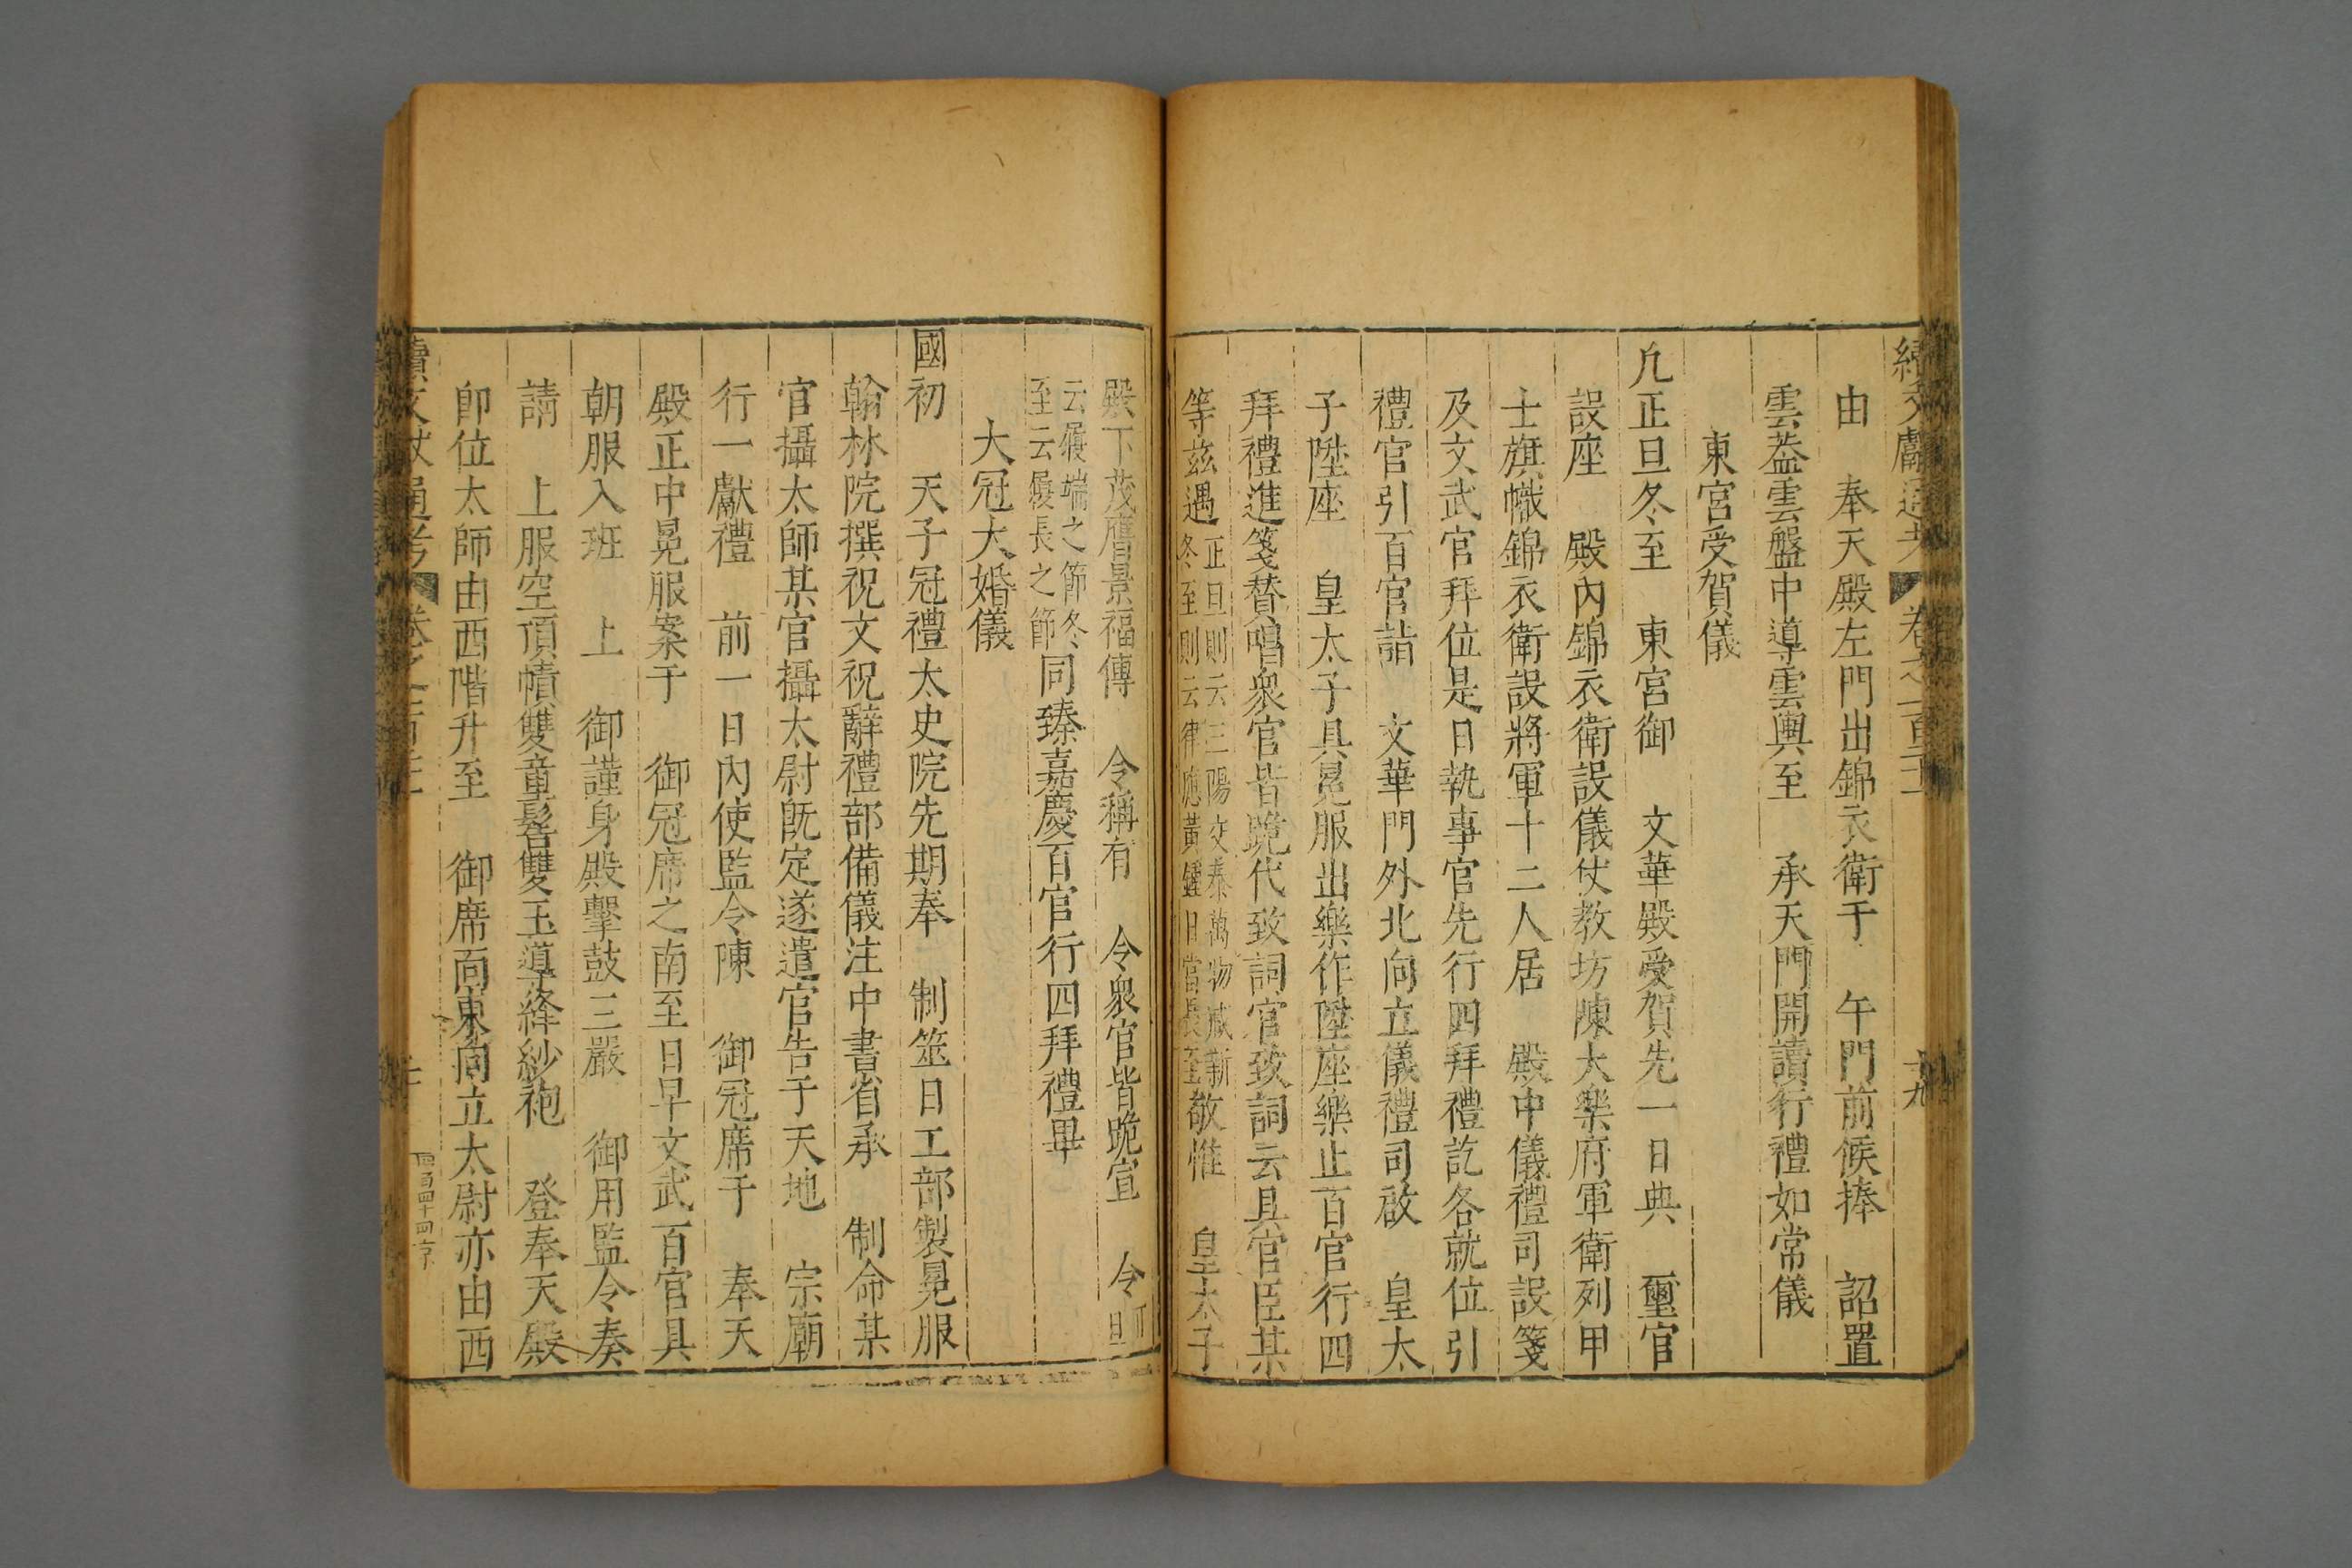 續文獻通考 卷之一百三 十九
由 奉天殿左門出錦衣衛于 午門前候捧 詔置
雲葢雲盤中導雲輿至 承天門開讀行禮如常儀
東宮受賀儀
凡正旦冬至 東宮御 文華殿受賀先一日典 璽官
設座 殿內錦衣衛設儀仗教坊陳大樂府軍衛列甲
士旗幟錦衣衛設將軍十二人居 殿中儀禮司設箋
及文武官拜位是日執事官先行四拜禮訖各就位引
禮官引百官詣 文華門外北向立儀禮司啟 皇太
子陞座 皇太子具冕服出樂作陞座樂止百官行四
拜禮進箋賛唱衆官皆跪代致詞官致詞云具官臣某
等兹遇
正旦則云三陽交泰萬物咸新
冬至則云律應黃鍾日當長至
敬惟 皇太子
殿下茂膺景福傳 令稱有 令衆官皆跪宣 令
云履端之節冬
至云履長之節
同臻嘉慶百官行四拜禮畢
大冠大婚儀
國初 天子冠禮太史院先期奉 制筮日工部製冕服
翰林院撰祝文祝辭禮部備儀注中書省承 制命某
官攝太師某官攝太尉既定遂遣官告于天地 宗廟
行一獻禮 前一日內使監令陳 御冠席于 奉天
殿正中冕服案于 御冠席之南至日早文武百官具
朝服入班 上 御謹身殿擊鼓三嚴 御用監令奏
請 上服空頂幘雙童髻雙玉導絳紗袍 登奉天殿
卽位太師由西階升至 御席面東向立太尉亦由西
續文獻通考 卷之一百三
四百四十四字